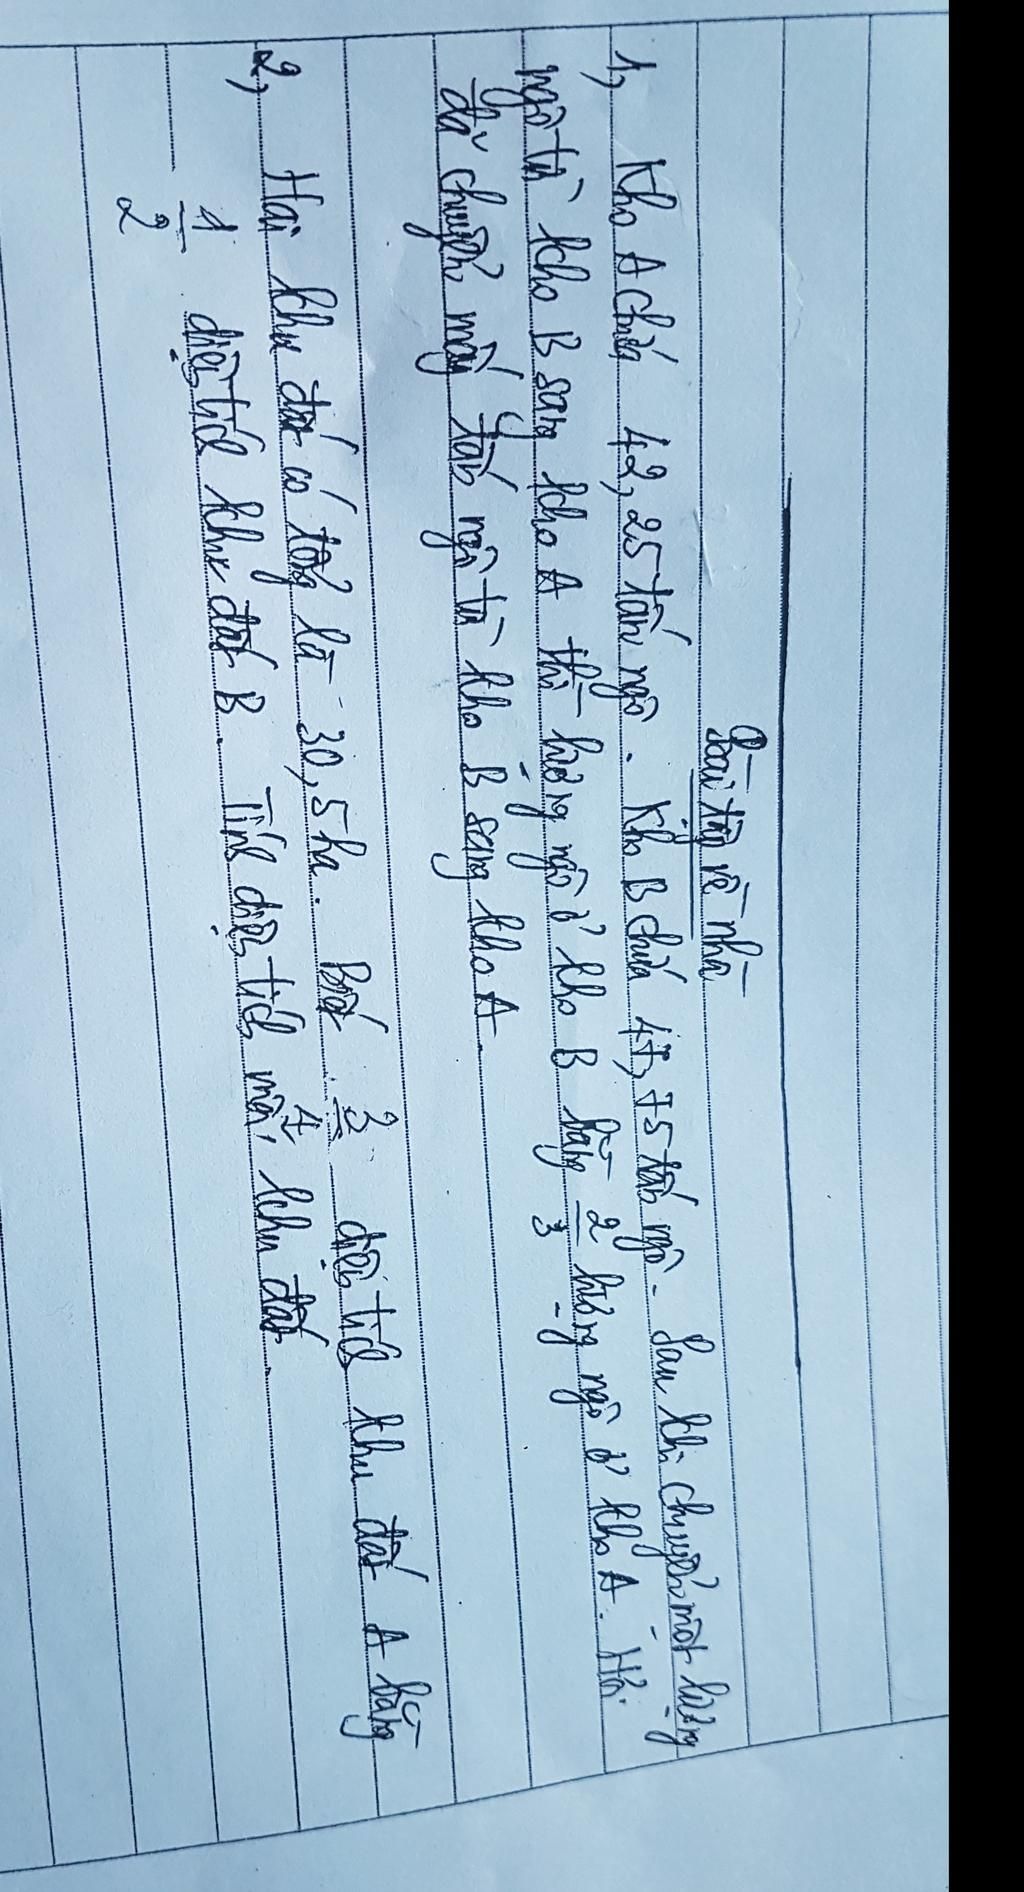 Bài tập về nhà
1, Kho A chứa 42,25 tấn ngô. Kho B chứa 47,75 tấn ngô. Sau khi chuyển một lượng
ngô từ kho B sang kho A thì lượng ngô ở kho B bằng 2/3 lượng ngô ở kho A. Hỏi
đã chuyển mấy tấn ngô từ kho B sang kho A.
2, Hai khu đất có tổng là 30,5 ha. Biết 3/4 diện tích khu đất A bằng
1/2 diện tích khu đất B. Tính diện tích mỗi khu đất.